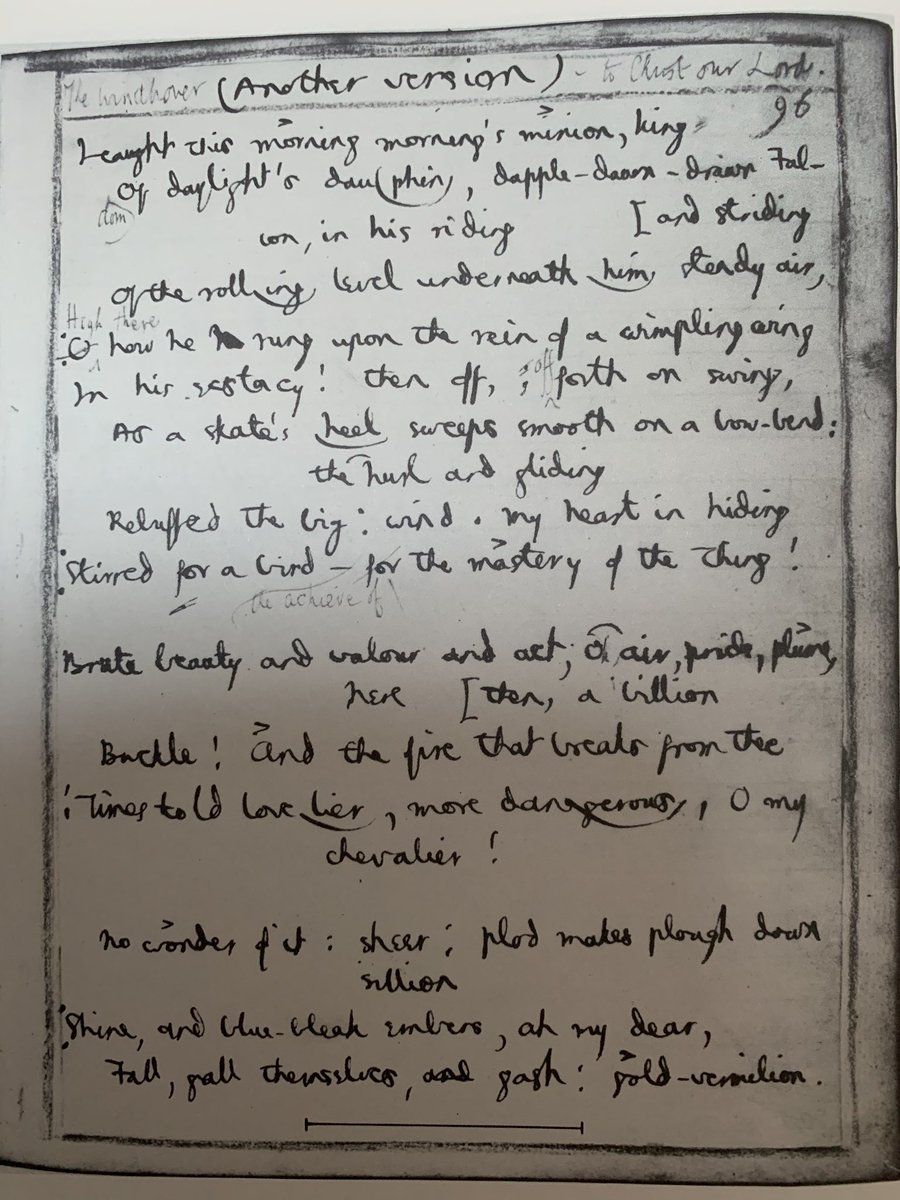 The Windhover (Another version) - to Christ our Lord.
96
I caught this morning morning's minion, king-
Of daylight's dauphin, dapple-dawn-drawn Fal-
dom
con, in his riding [and striding
Of the rolling level underneath him steady air,
High there
O how he rung upon the rein of a wimpling wing
In his ecstacy! then off, ; off forth on swing,
As a skate's heel sweeps smooth on a bow-bend:
the hurl and gliding
Rebuffed the big: wind. My heart in hiding
Stirred for a bird – for the mastery of the thing!
the achieve of
Brute beauty and valour and act, O air, pride, plume,
here [then, a billion
Buckle! and the fire that breaks from thee
Times told lovelier, more dangerous, O my
chevalier!
No wonder of it: sheer; plod makes plough down
sillion
Shine, and blue-bleak embers, ah my dear,
Fall, gall themselves, and gash: gold-vermilion.